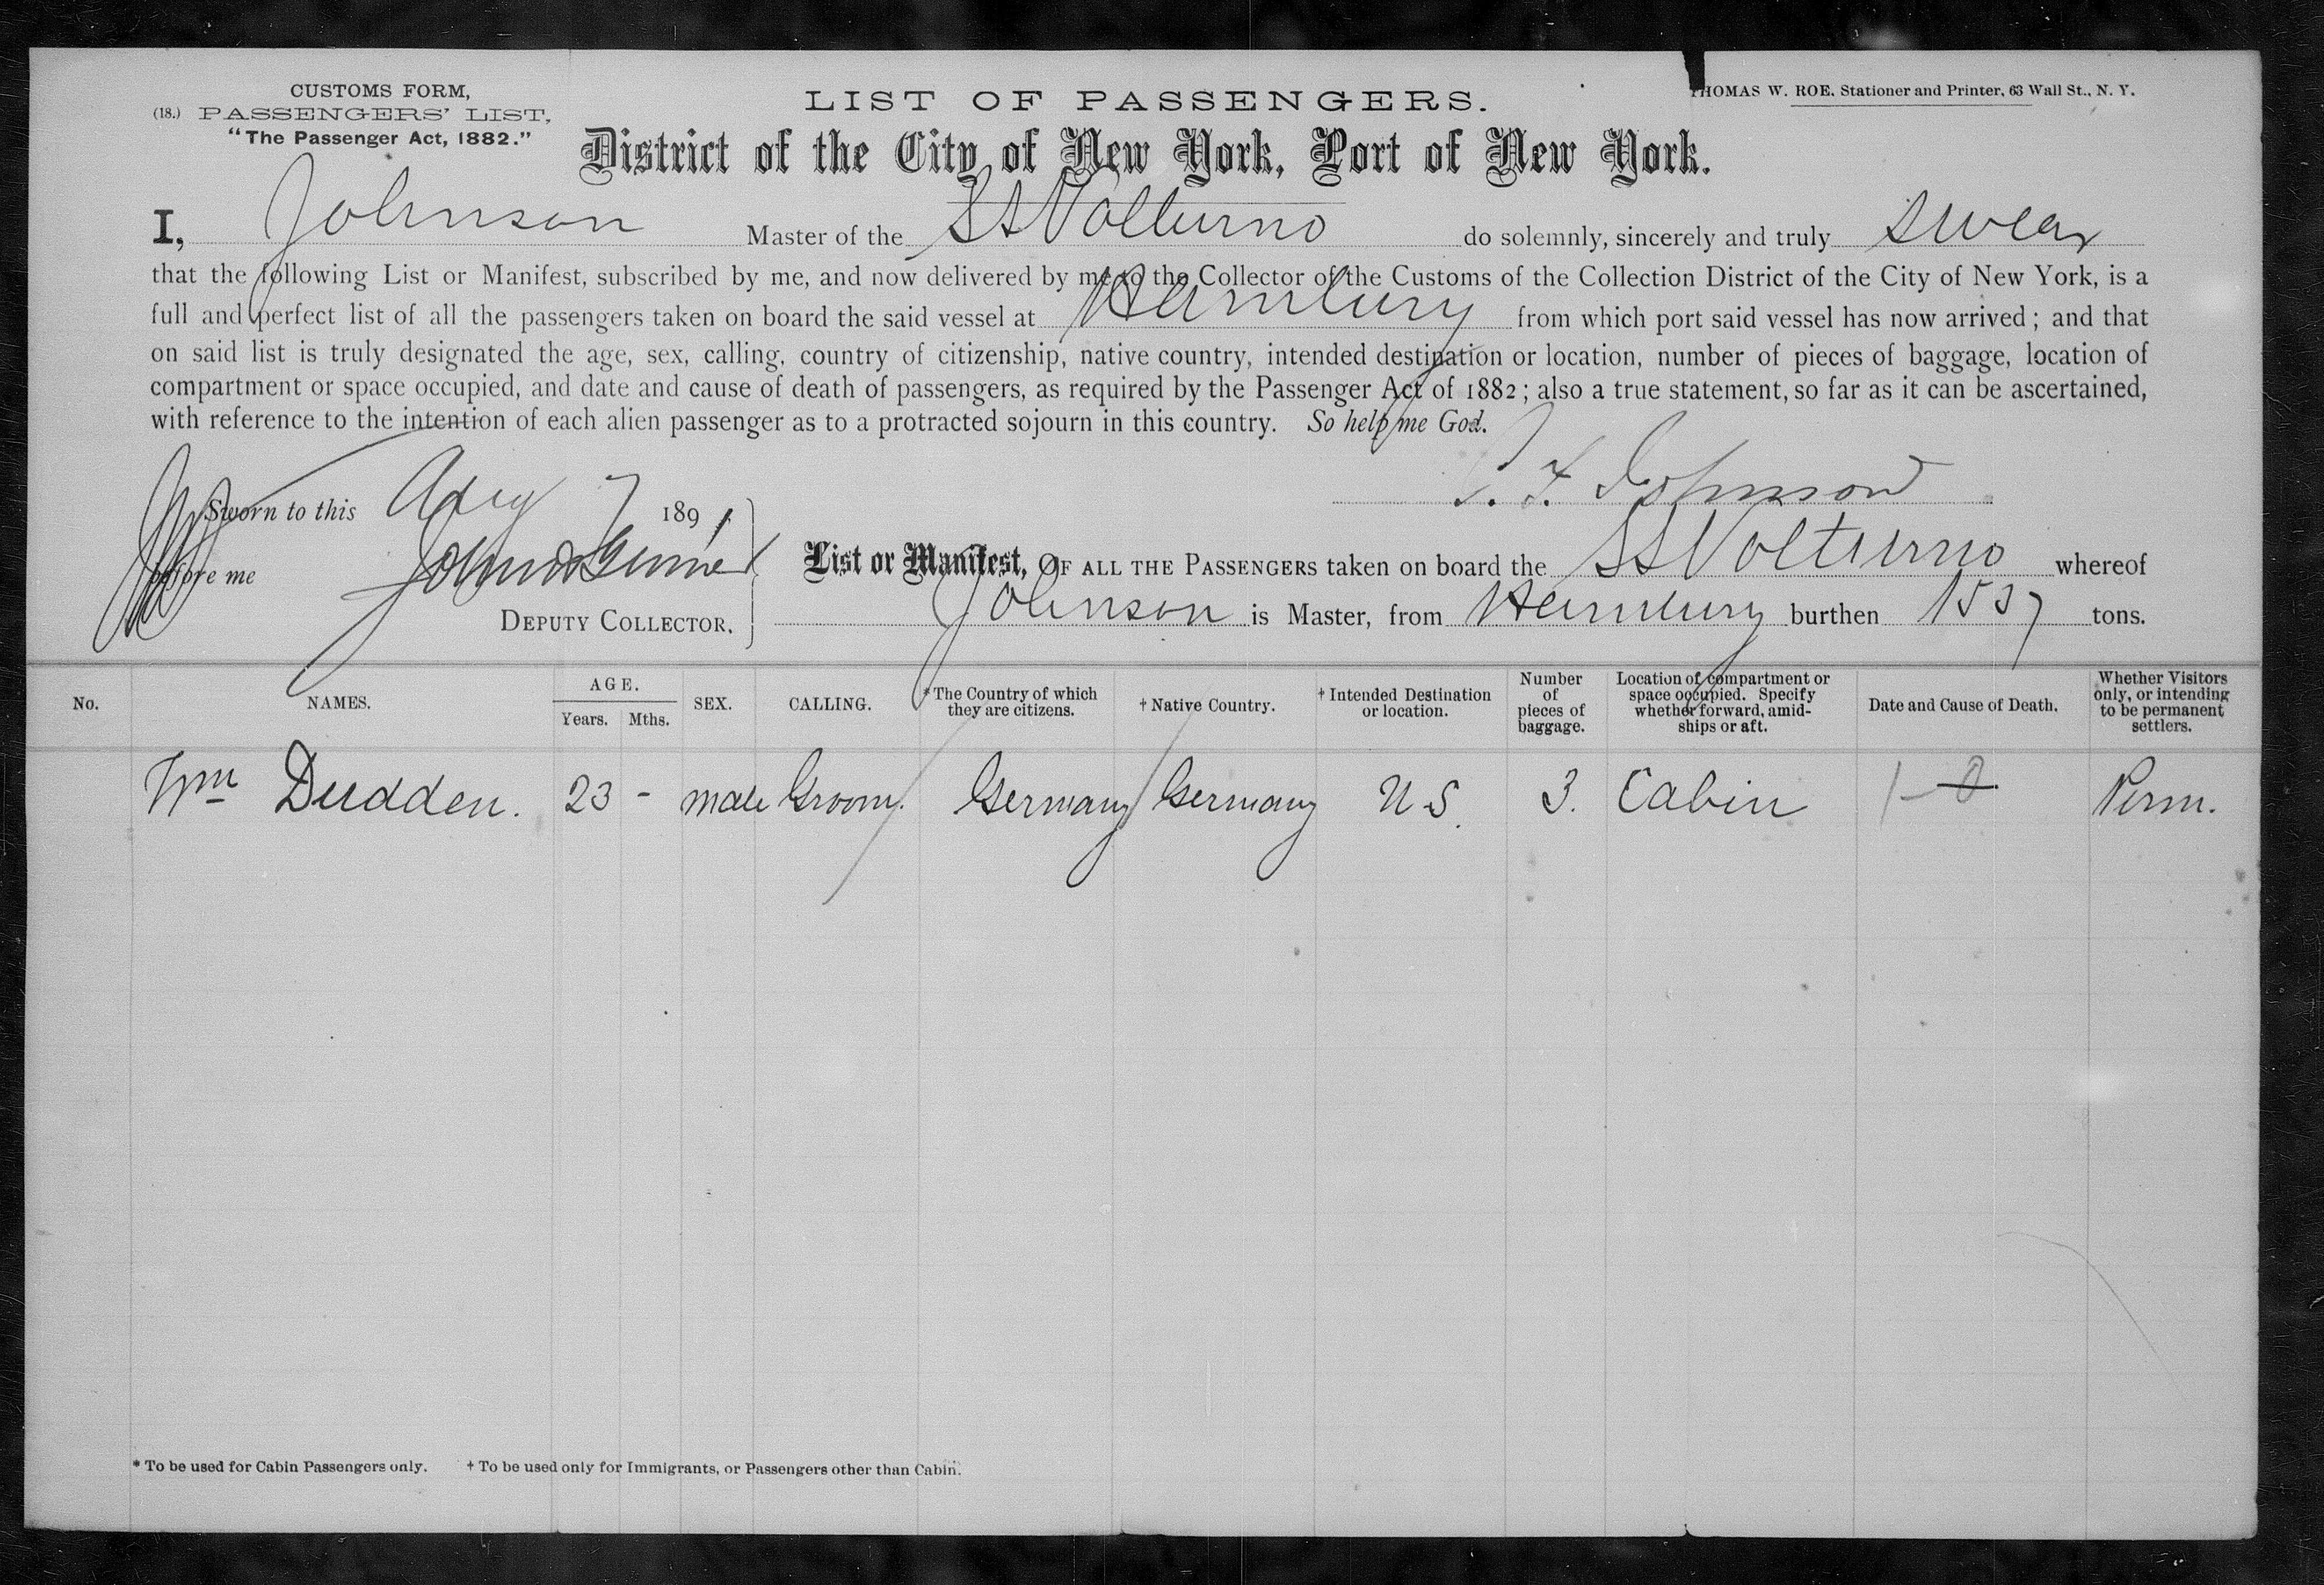 CUSTOMS FORM,
(18.) PASSENGERS' LIST,
"The Passenger Act, 1882."
LIST OF PASSENGERS.
THOMAS W. ROE. Stationer and Printer, 63 Wall St., N. Y.
District of the City of New York, Port of New York.
I, Johnson Master of the SS Volturno do solemnly, sincerely and truly swear
that the following List or Manifest, subscribed by me, and now delivered by me to the Collector of the Customs of the Collection District of the City of New York, is a
full and perfect list of all the passengers taken on board the said vessel at Hamburg from which port said vessel has now arrived; and that
on said list is truly designated the age, sex, calling, country of citizenship, native country, intended destination or location, number of pieces of baggage, location of
compartment or space occupied, and date and cause of death of passengers, as required by the Passenger Act of 1882; also a true statement, so far as it can be ascertained,
with reference to the intention of each alien passenger as to a protracted sojourn in this country. So help me God.
F. Johnson
Sworn to this Aug 7 1891
before me
DEPUTY COLLECTOR.
List or Manifest, OF ALL THE PASSENGERS taken on board the SS Volturno whereof
Johnson is Master, from Hamburg burthen 1537 tons.
No. NAMES. AGE. Years. Mths. SEX. CALLING. *The Country of which they are citizens. †Native Country. †Intended Destination or location. Number of pieces of baggage. Location of compartment or space occupied. Specify whether forward, amid-ships or aft. Date and Cause of Death. Whether Visitors only, or intending to be permanent settlers.
Wm Dudden. 23 - male Groom. Germany Germany U S. 3. Cabin Perm.
* To be used for Cabin Passengers only. † To be used only for Immigrants, or Passengers other than Cabin.